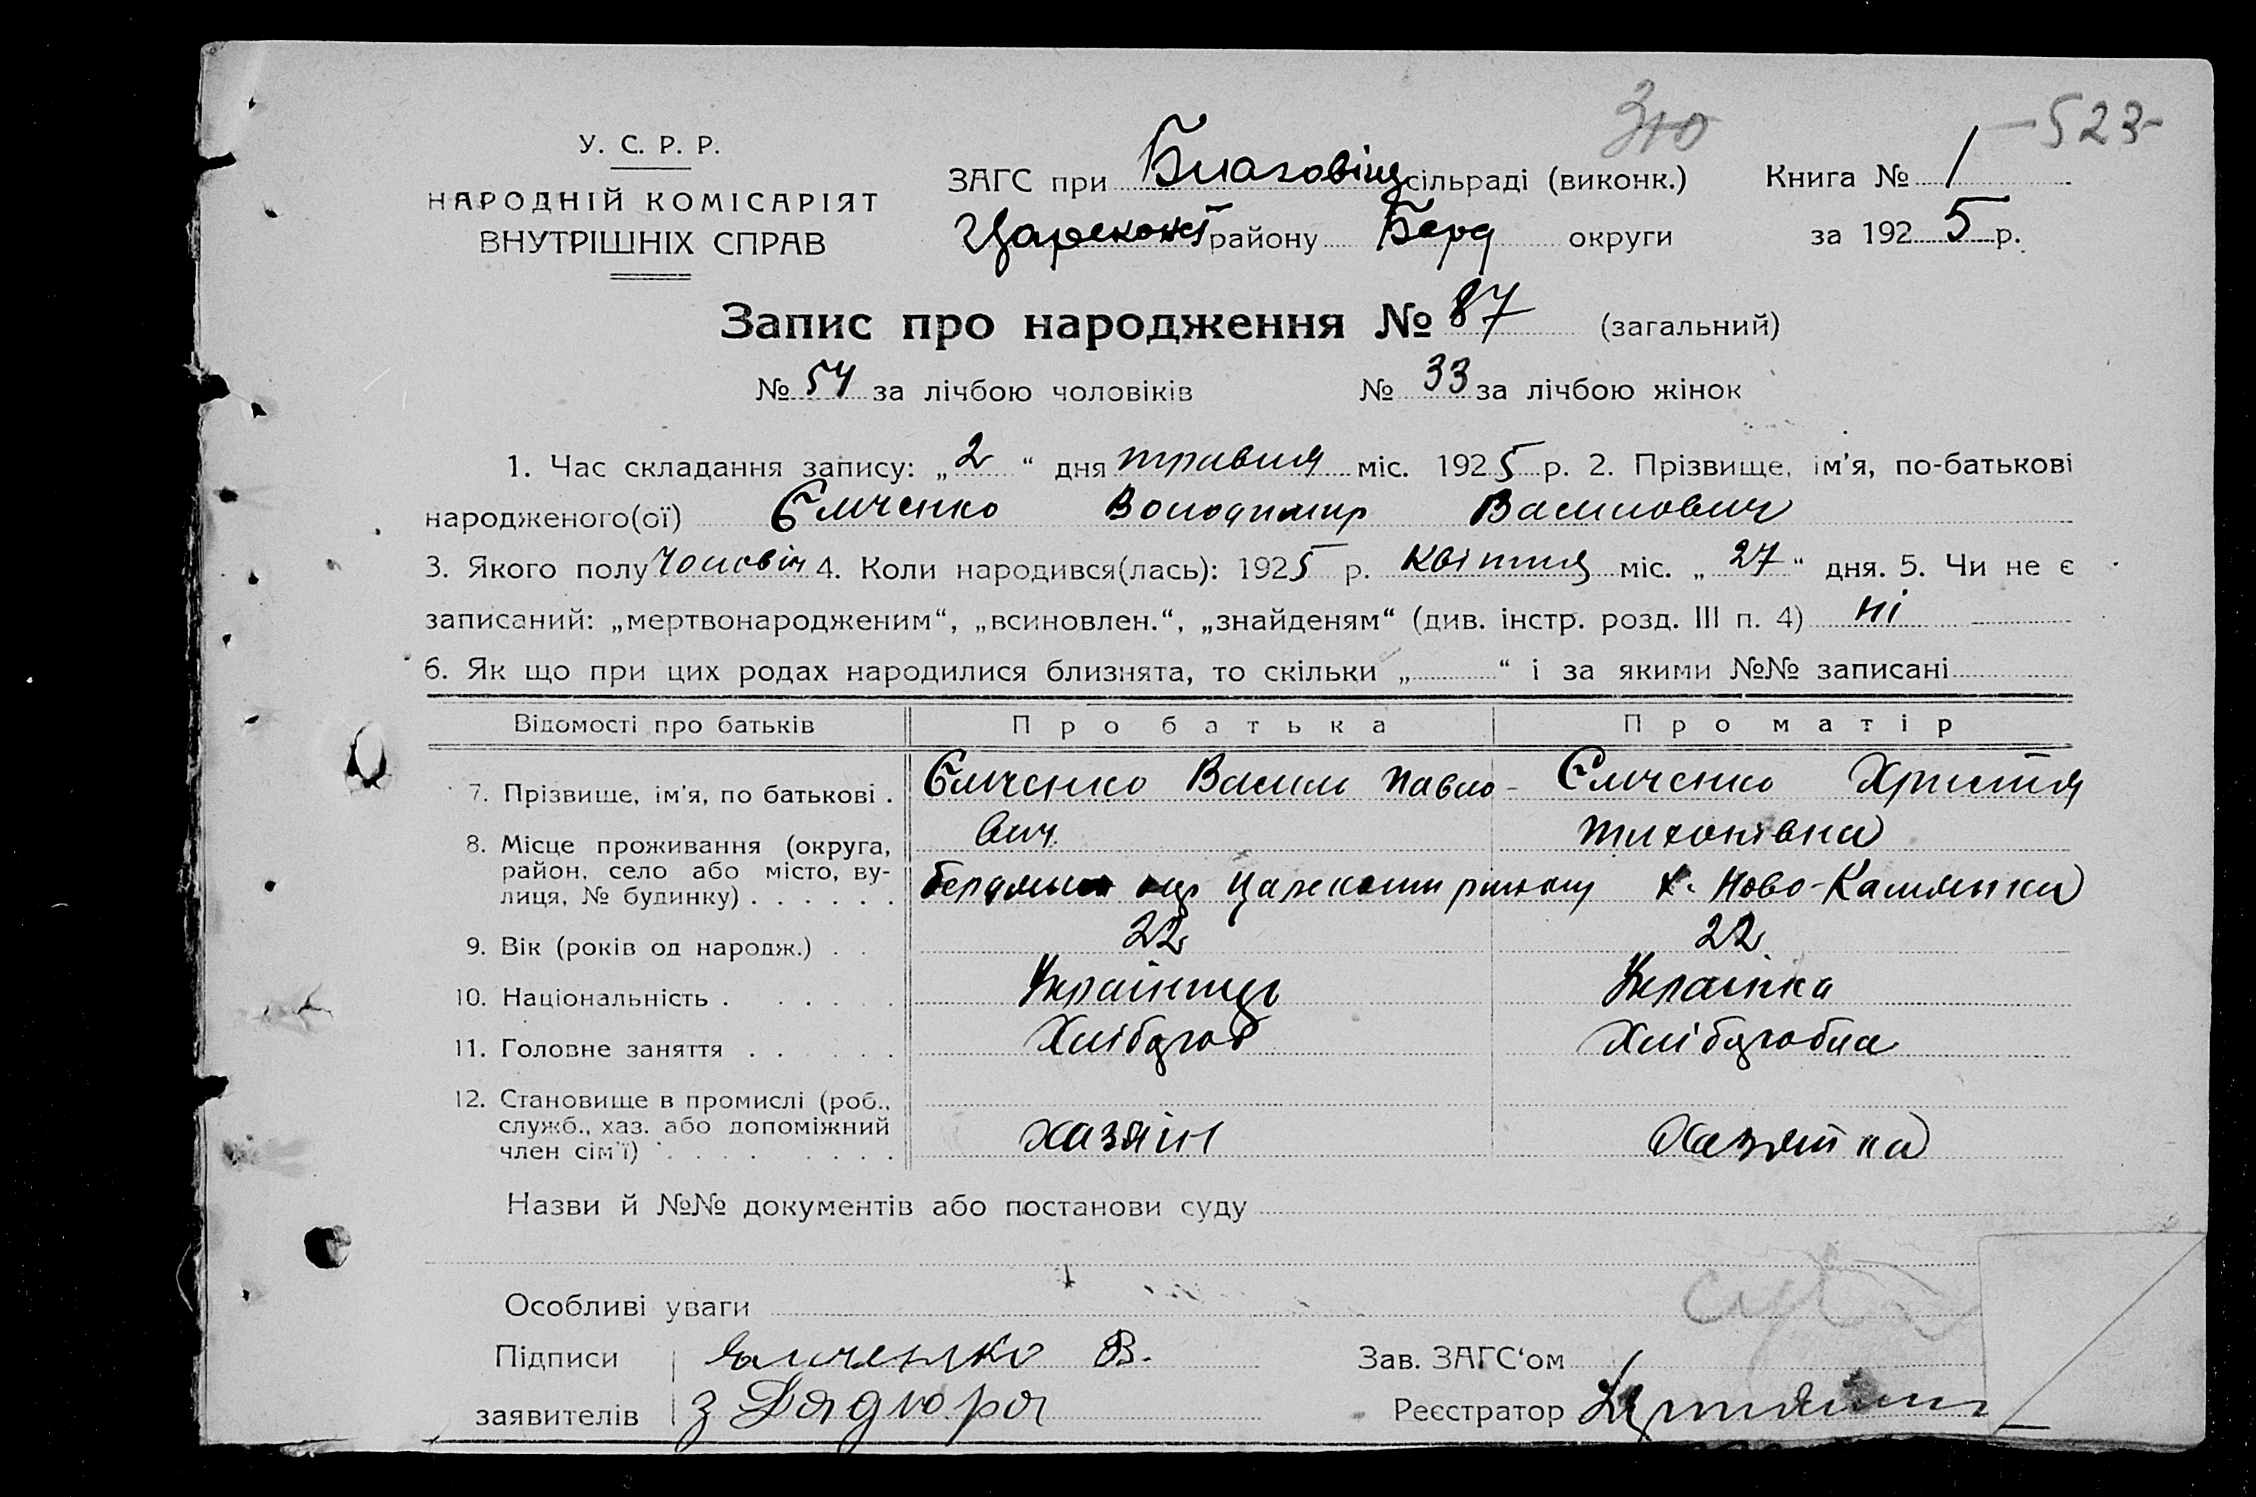 -523-
У. С. Р. Р.
НАРОДНІЙ КОМІСАРІЯТ
ВНУТРІШНІХ СПРАВ
ЗАГС при Благовіщ сільраді (виконк.) Книга № 1
Царекост району Берд округи за 1925 р.
Запис про народження № 87 (загальний)
№ 54 за лічбою чоловіків № 33 за лічбою жінок
1. Час складання запису: „2“ дня травня міс. 1925 р. 2. Прізвище, ім'я, по-батькові
народженого(ої) Єлченко Володимир Василович
3. Якого полу Чоловіч 4. Коли народився(лась): 1925 р. квітня міс. „27“ дня. 5. Чи не є
записаний: „мертвонародженим“, „всиновлен.“, „знайденям“ (див. інстр. розд. III п. 4) ні
6. Як що при цих родах народилися близнята, то скільки „ “ і за якими №№ записані
Відомості про батьків Про батька Про матір
7. Прізвище, ім'я, по батькові . Єлченко Васил Павло- Єлченко Христя
вич Тихонівна
8. Місце проживання (округа, район, село або місто, ву-
лиця, № будинку) . . . . . . Царекост району х. Ново-Камянка
9. Вік (років од народж.) . . 22 22
10. Національність . . . . . . Українець Українка
11. Головне заняття . . . . . Хлібороб Хліборобка
12. Становище в промислі (роб.,
служб., хаз. або допоміжний
член сім'ї) . . . . . . . . . хазяїн Хазяйка
Назви й №№ документів або постанови суду
Особливі уваги
Підписи Елченко В. Зав. ЗАГС'ом
заявителів З Дядюра Реєстратор